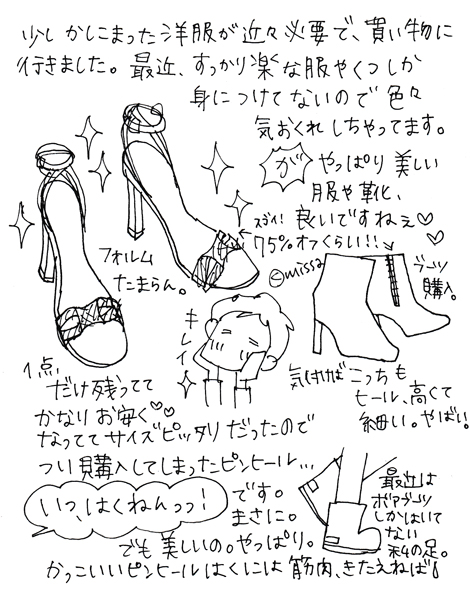 少しかしこまった洋服が近々必要で、買い物に
行きました。最近、すっかり楽な服やくつしか
身につけてないので色々
気おくれしちゃってます。
が やっぱり美しい
服や靴、
良いですねぇ♡
スゴイ!
75%オフくらい!!
©missa
フォルム
たまらん。
ブーツ
購入。
キレイ
1点
だけ残ってて
かなりお安く♡♡
なっててサイズピッタリだったので
つい購入してしまったピンヒール…
気付けばこっちも
ヒール、高くて
細い。やばい。
いつ、はくねんっっ!
です。
まさに。
でも美しいの。やっぱり。
最近は
ボアブーツ
しかはいて
ない
私の足。
かっこいいピンヒールはくには筋肉、きたえねば!